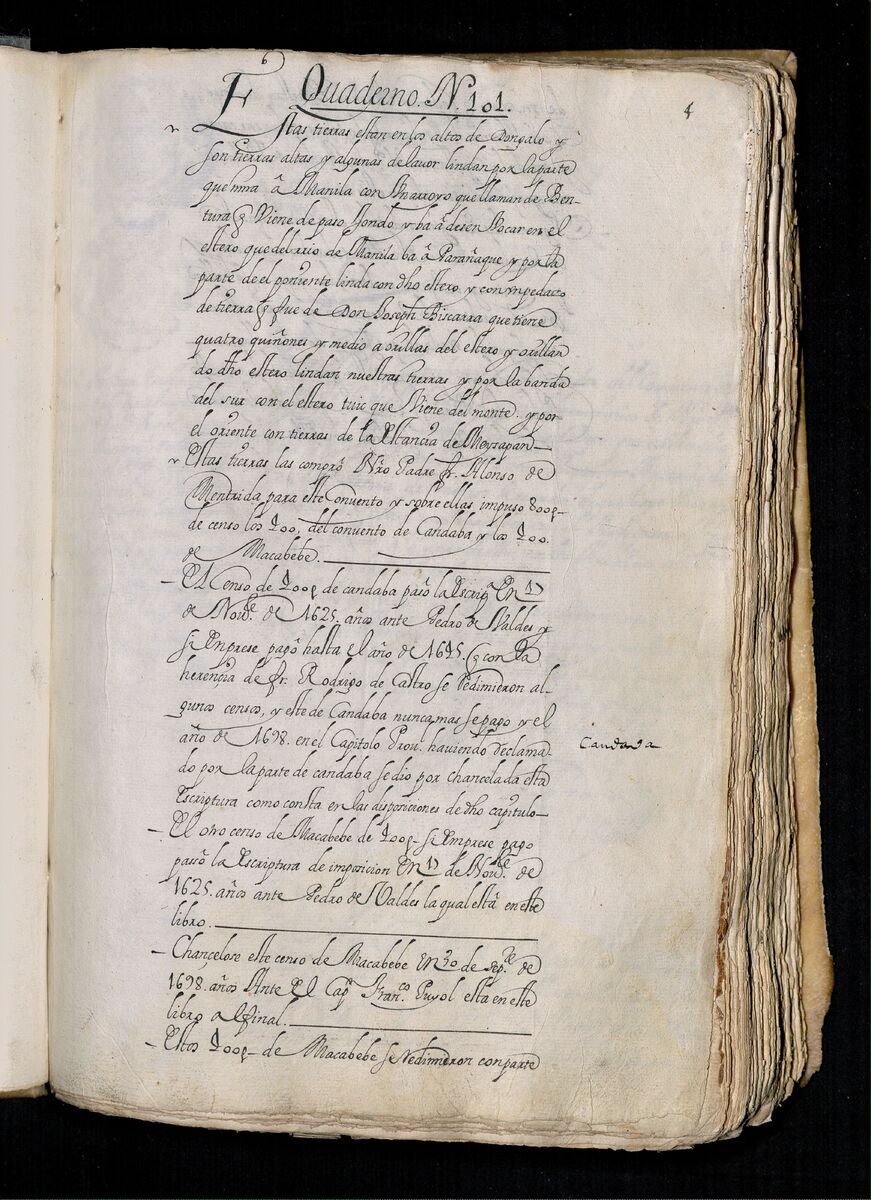 4
Quaderno. N. 101.
Estas tierras estan en los altos de Dongalo y
son tierras altas y algunas de lavor lindan por la parte
que mira â Manila con Vn arroyo que llaman de Ben-
tura q Viene de paso hondo y ba â desen Bocar en el
estero que del rrio de Manila ba â Parañaque y por la
parte de el poniente linda con dho estero y con vn pedaço
de tierra q fue de Don Joseph Biscarra que tiene
quatro quiñones y medio a orillas del estero y orillan
do dho estero lindan nuestras tierras y por la banda
del sur con el estero tuic que Viene del monte. y por
el oriente con tierras de la Estancia de Meysapan
Estas tierras las comprô Nro Padre fr. Alonso de
Mentrida para este Convento y sobre ellas impuso 800p
de censo los 400. del convento de Candaba y los 400.
de Macabebe.
El Censo de 400p de candaba pasô la Escripa En 17
de Noue. de 1625. años ante Pedro de Valdes y
siEmprese pagô hasta el año de 1695. q con la
herençia de fr. Rodrigo de Castro se Redimieron al-
gunos censos, y este de Candaba nunca mas se pago y el
año de 1698. en el Capitolo Prou. haviendo Reclama-
do por la parte de candaba se dio por chancelada esta
Escriptura como consta en las disposiciones de dho capitulo
Candaba
El otro censo de Macabebe de 400p siEmprese pago
passô la Escriptura de imposicion En 17 de Noue. de
1625. años ante Pedro de Valdes la qual estâ en este
libro.
Chançelose este censo de Macabebe En 30 de Sepre. de
1698. años Ante El Capn Franco. Puyol esta en este
libro a el final.
Estos 400p de Macabebe se Redimieron con parte